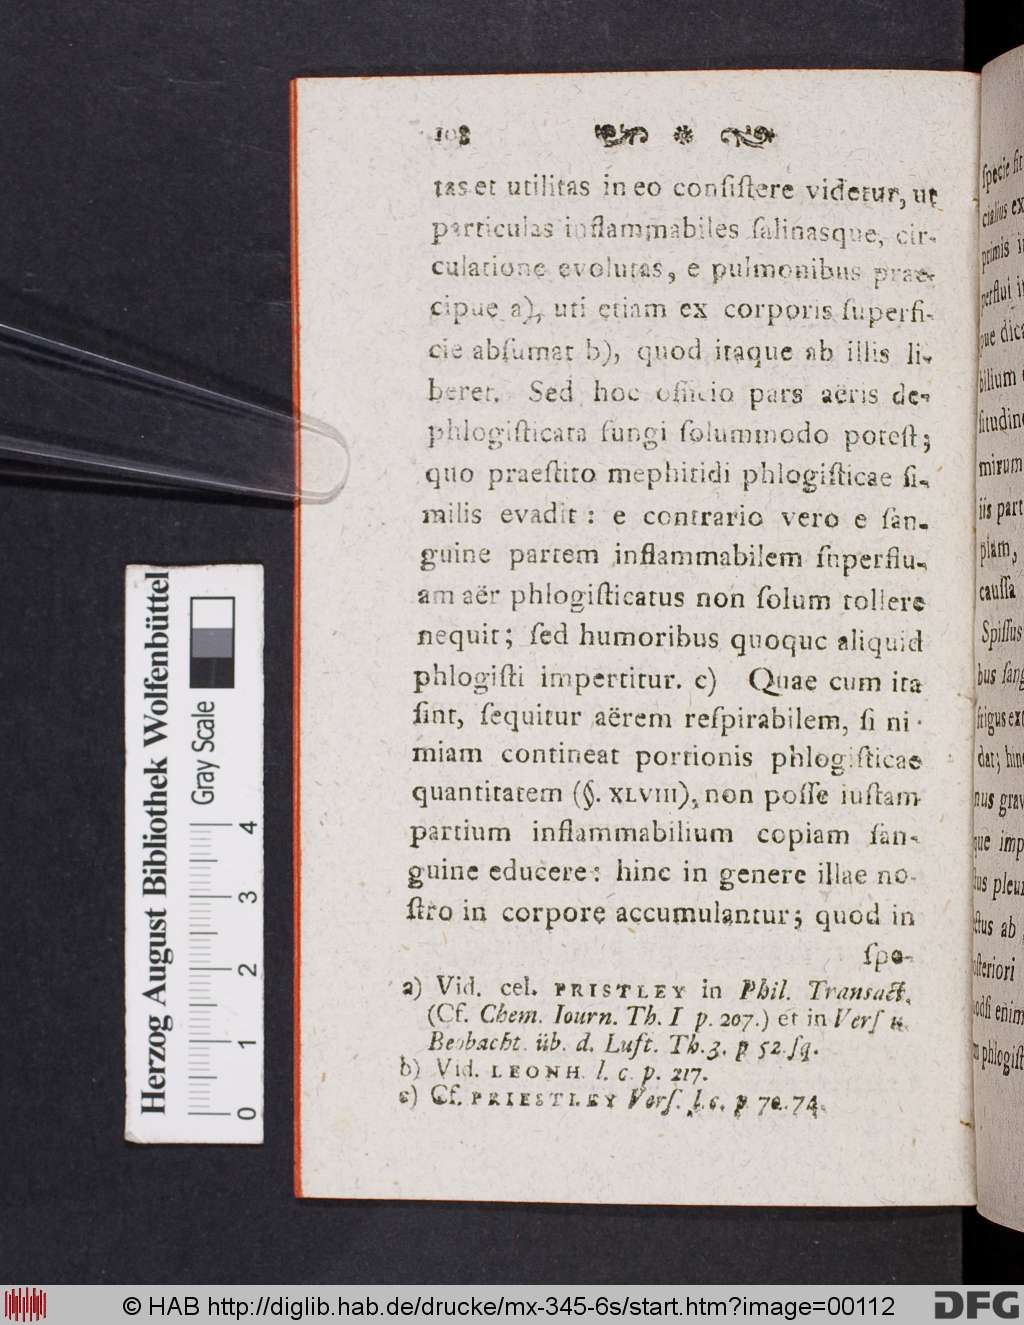 108
tas et utilitas in eo conſiſtere videtur, ut
particulas inflammabiles ſalinasque, cir-
culatione evolutas, e pulmonibus prae-
cipue a), uti etiam ex corporis ſuperfi-
cie abſumat b), quod itaque ab illis li-
beret. Sed hoc officio pars aëris de-
phlogiſticata fungi ſolummodo poteſt;
quo praeſtito mephitidi phlogiſticae ſi-
milis evadit: e contrario vero e ſan-
guine partem inflammabilem ſuperflu-
am aër phlogiſticatus non ſolum tollere
nequit; ſed humoribus quoque aliquid
phlogiſti impertitur. c) Quae cum ita
ſint, ſequitur aërem reſpirabilem, ſi ni-
miam contineat portionis phlogiſticae
quantitatem (§. XLVIII), non poſſe iuſtam
partium inflammabilium copiam ſan-
guine educere: hinc in genere illae no-
ſtro in corpore accumulantur; quod in
ſpe-
a) Vid. cel. PRISTLEY in Phil. Transact.
(Cf. Chem. Iourn. Th. I p. 207.) et in Verſ u.
Beobacht. üb. d. Luft. Th. 3. p 52. ſq.
b) Vid. LEONH. l. c. p. 217.
c) Cf. PRIESTLEY Verſ. l. c. p. 70. 74.
ſpecie
cialius ex
primis
perflui
que
bilium
ſitudin
mirum
iis part
piam,
cauſſa
Spiſſus
bus ſang
frigus ext
dat; hin
nus grav
que imp
ab
oſteriori
enim
phlogiſt
Herzog August Bibliothek Wolfenbüttel
Gray Scale
0 1 2 3 4
© HAB http://diglib.hab.de/drucke/mx-345-6s/start.htm?image=00112
DFG